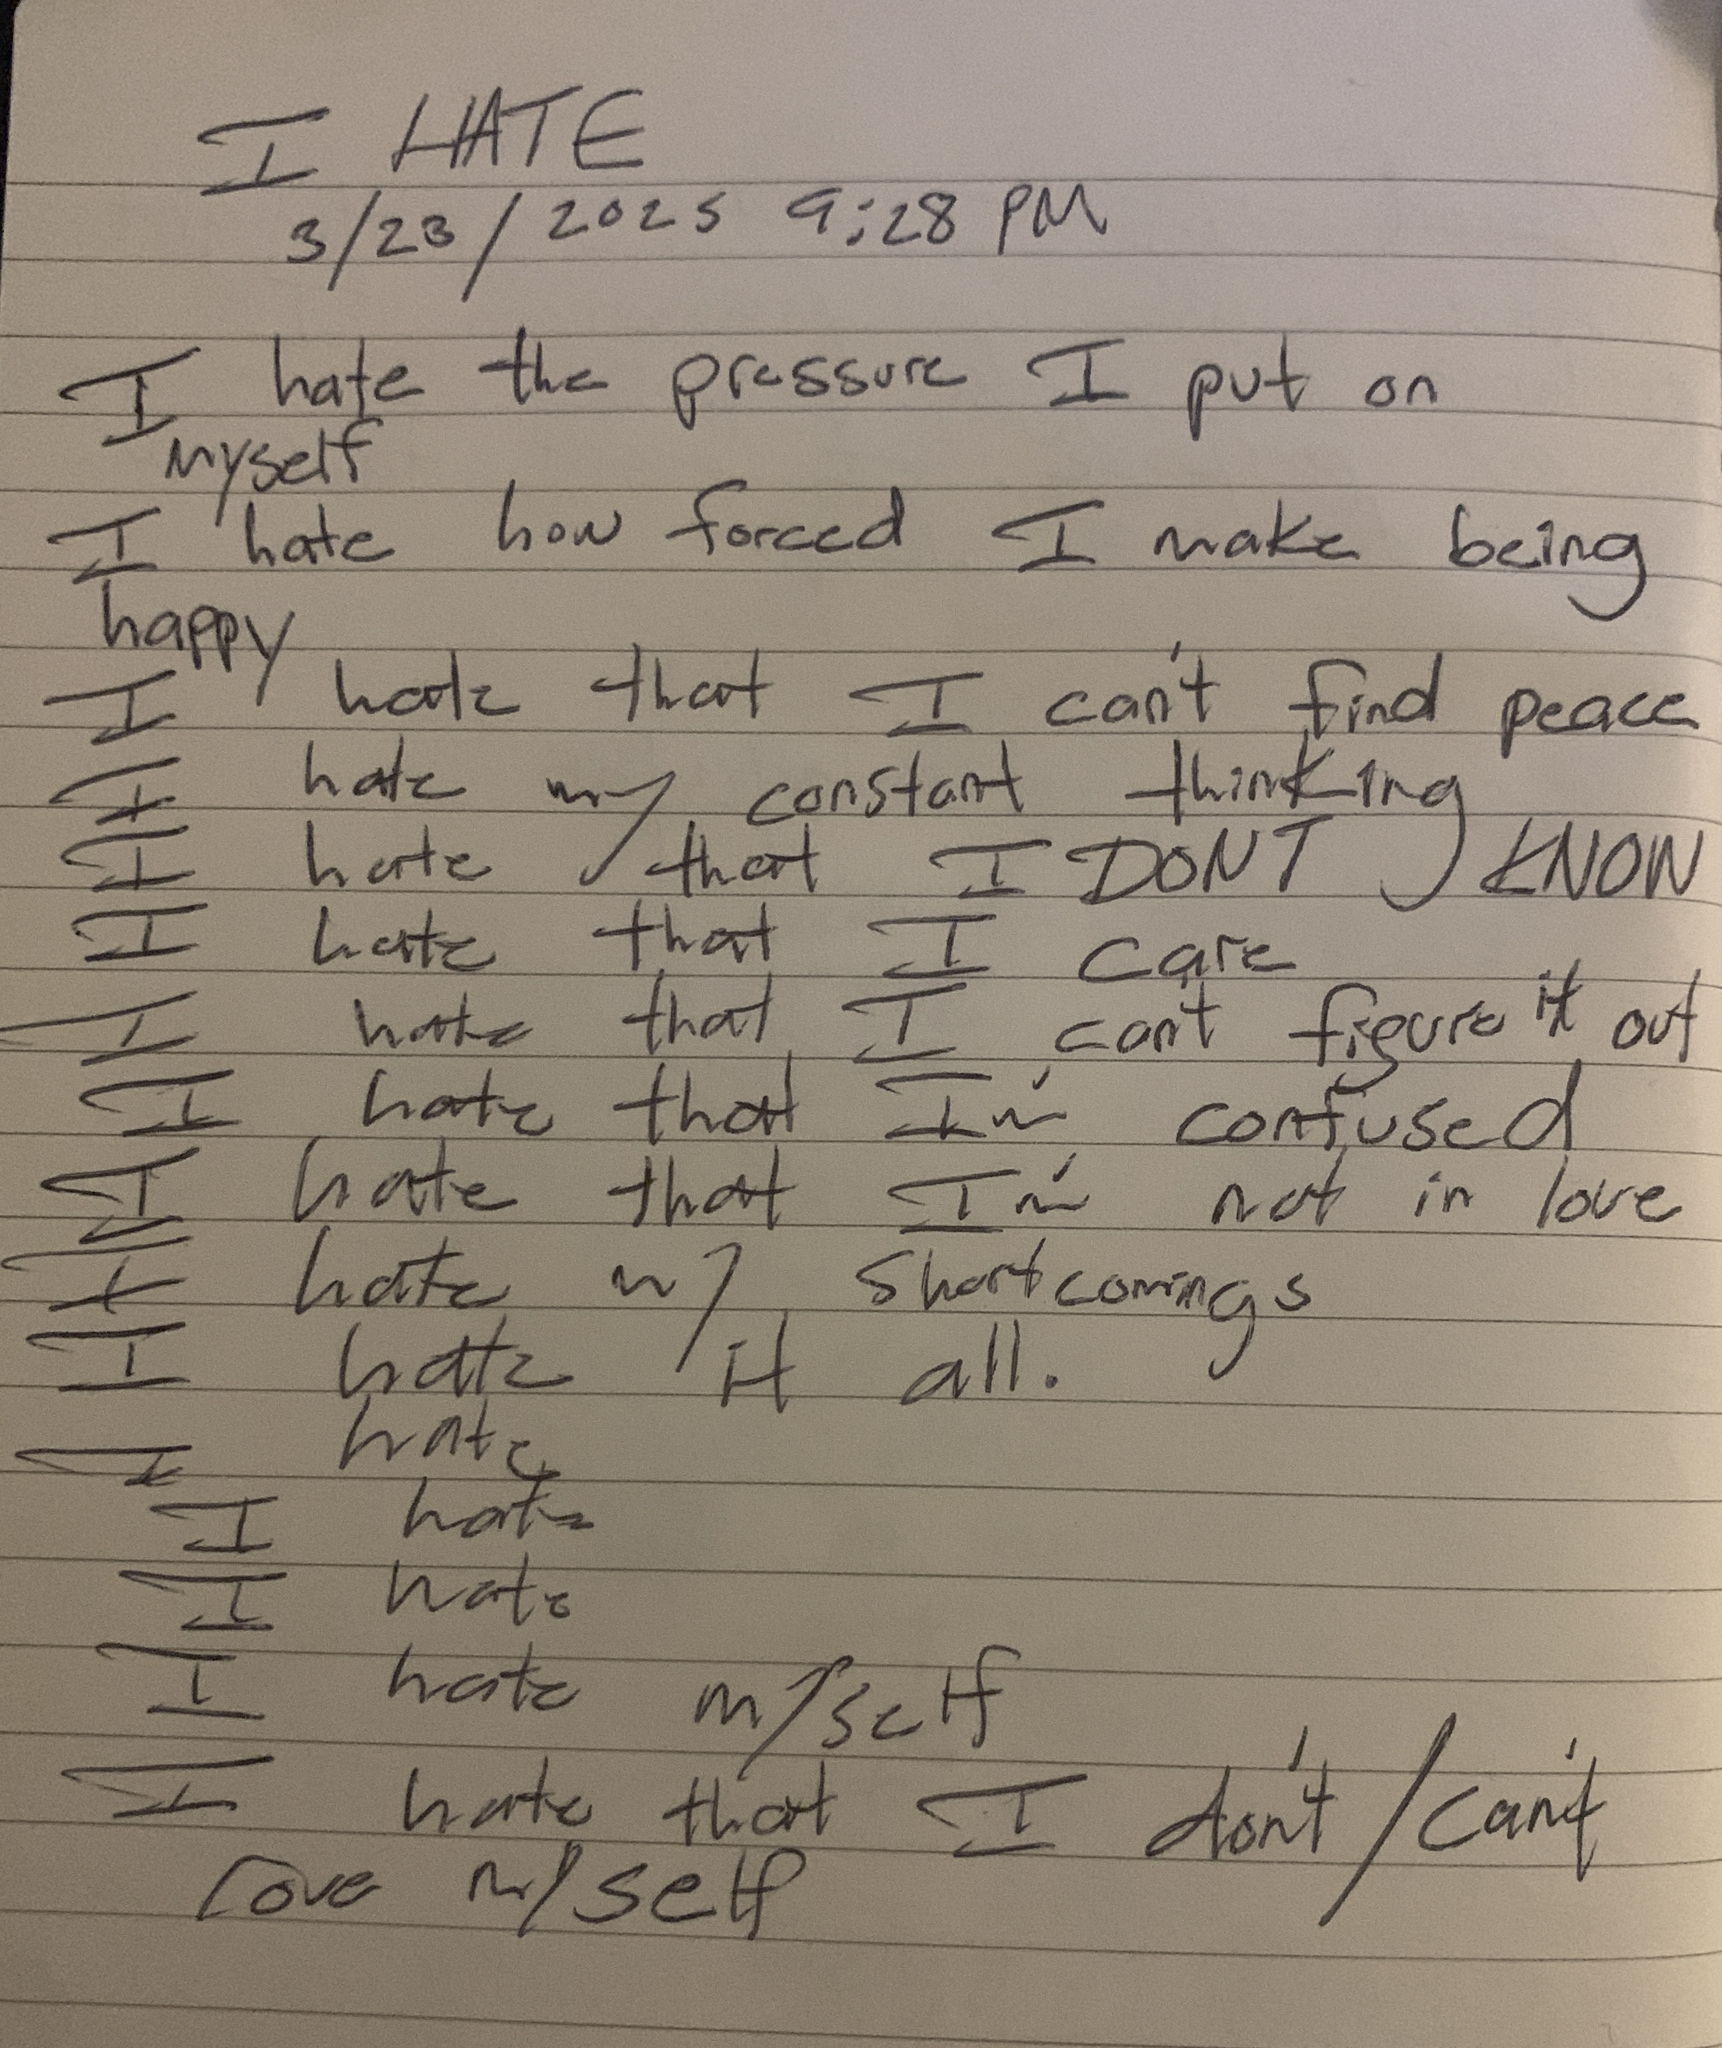 I HATE
3/23/2025 9:28 PM
I hate the pressure I put on
myself
I hate how forced I make being
happy
I hate that I can't find peace
I hate my constant thinking
I hate that I DONT KNOW
I hate that I care
I hate that I can't figure it out
I hate that I'm confused
I hate that I'm not in love
I hate my shortcomings
I hate it all.
I hate
I hate
I hate
I hate myself
I hate that I don't/can't
love myself